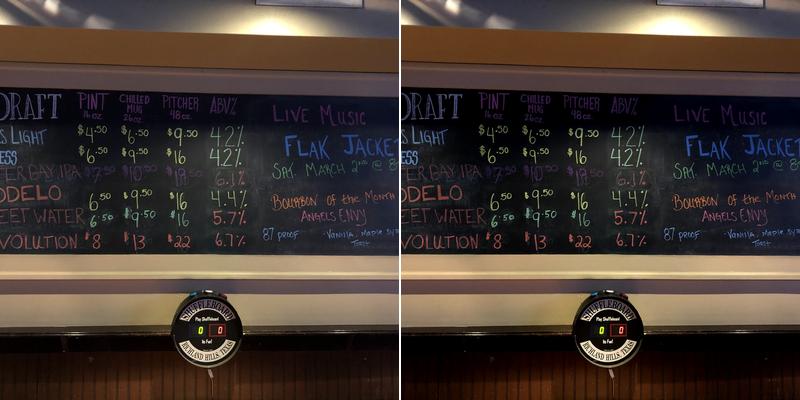 DRAFT PINT 16oz CHILLED MUG 26oz PITCHER 48oz. ABV%
S LIGHT $4.50 $6.50 $9.50 4.2%
ESS $6.50 $9.50 $16 4.2%
TER BAY IPA $7.50 $10.50 $18.50 6.1%
ODELO 6.50 9.50 $16 4.4%
EET WATER 6.50 $9.50 $16 5.7%
VOLUTION $8 $13 $22 6.7%
LIVE MUSIC
FLAK JACKET
SAT. MARCH 2ND @ 8
BOURBON of the MONTH
ANGELS ENVY
87 PROOF -VANILLA, MAPLE
TOAST
SHUFFLEBOARD
Play Shuffleboard
0 0
Its Fun!
RICHLAND HILLS, TEXAS
DRAFT PINT 16oz CHILLED MUG 26oz PITCHER 48oz. ABV%
S LIGHT $4.50 $6.50 $9.50 4.2%
ESS $6.50 $9.50 $16 4.2%
TER BAY IPA $7.50 $10.50 $18.50 6.1%
ODELO 6.50 9.50 $16 4.4%
EET WATER 6.50 $9.50 $16 5.7%
VOLUTION $8 $13 $22 6.7%
LIVE MUSIC
FLAK JACKET
SAT. MARCH 2ND @ 8
BOURBON of the MONTH
ANGELS ENVY
87 PROOF -VANILLA, MAPLE
TOAST
SHUFFLEBOARD
Play Shuffleboard
0 0
Its Fun!
RICHLAND HILLS, TEXAS